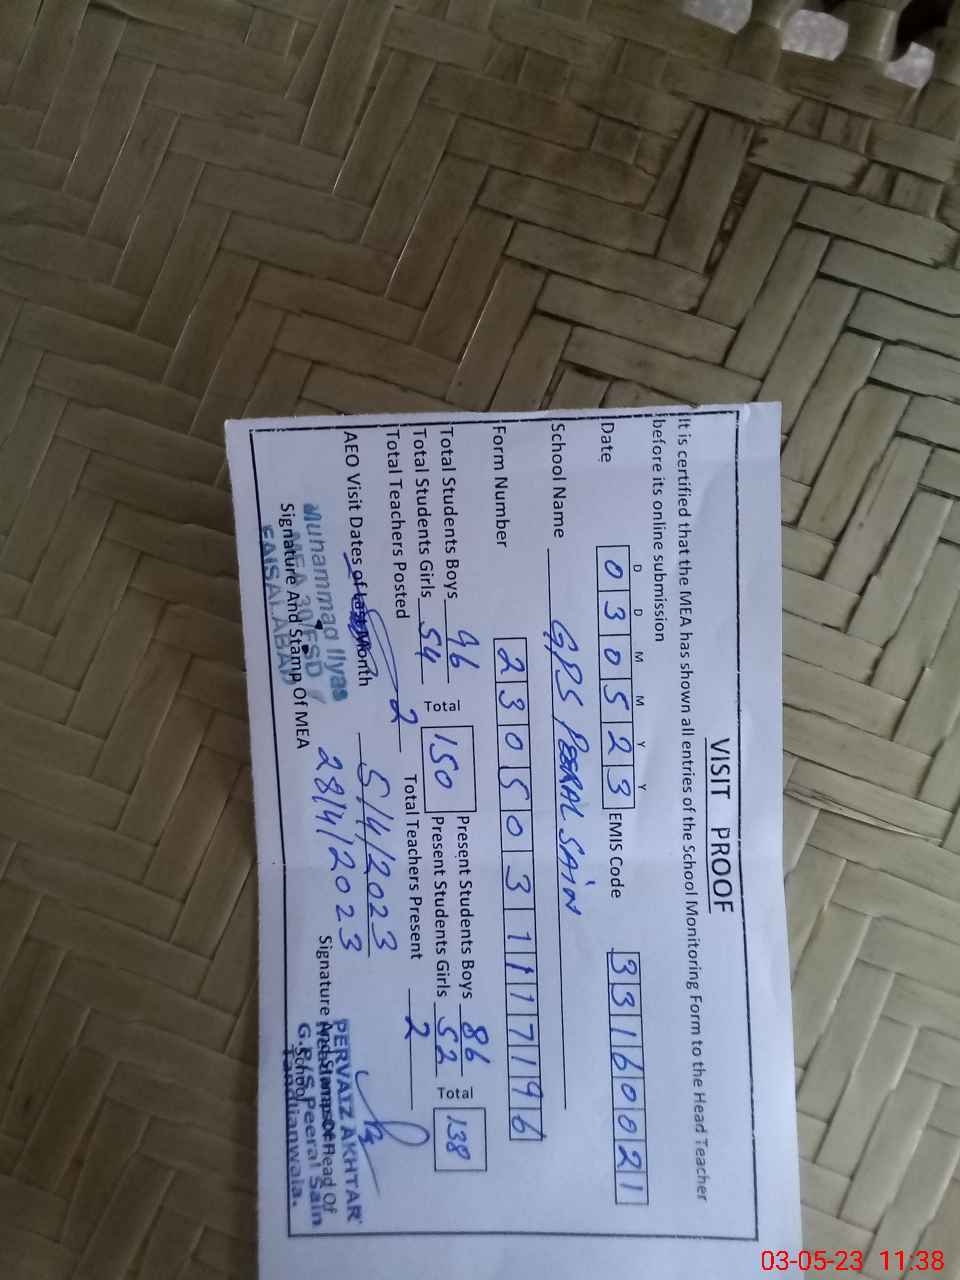 VISIT PROOF
It is certified that the MEA has shown all entries of the School Monitoring Form to the Head Teacher
before its online submission
D D M M Y Y
Date 0 3 0 5 2 3 EMIS Code 3 3 1 6 0 0 2 1
School Name GPS PEERAL SAIN
Form Number 2 3 0 5 0 3 1 1 1 7 1 9 6
Total Students Boys 96 Total 150 Present Students Boys 86 Total 138
Total Students Girls 54 Present Students Girls 52
Total Teachers Posted 2 Total Teachers Present 2
AEO Visit Dates of Last Month 5/4/2023
28/4/2023
Muhammad Ilyas
MEA 39/FSD
FAISALABAD
Signature And Stamp Of MEA
Signature And Stamp Of Head Of
School
PERVAIZ AKHTAR
G.P/S Peeral Sain
Tandlianwala.
03-05-23 11:38